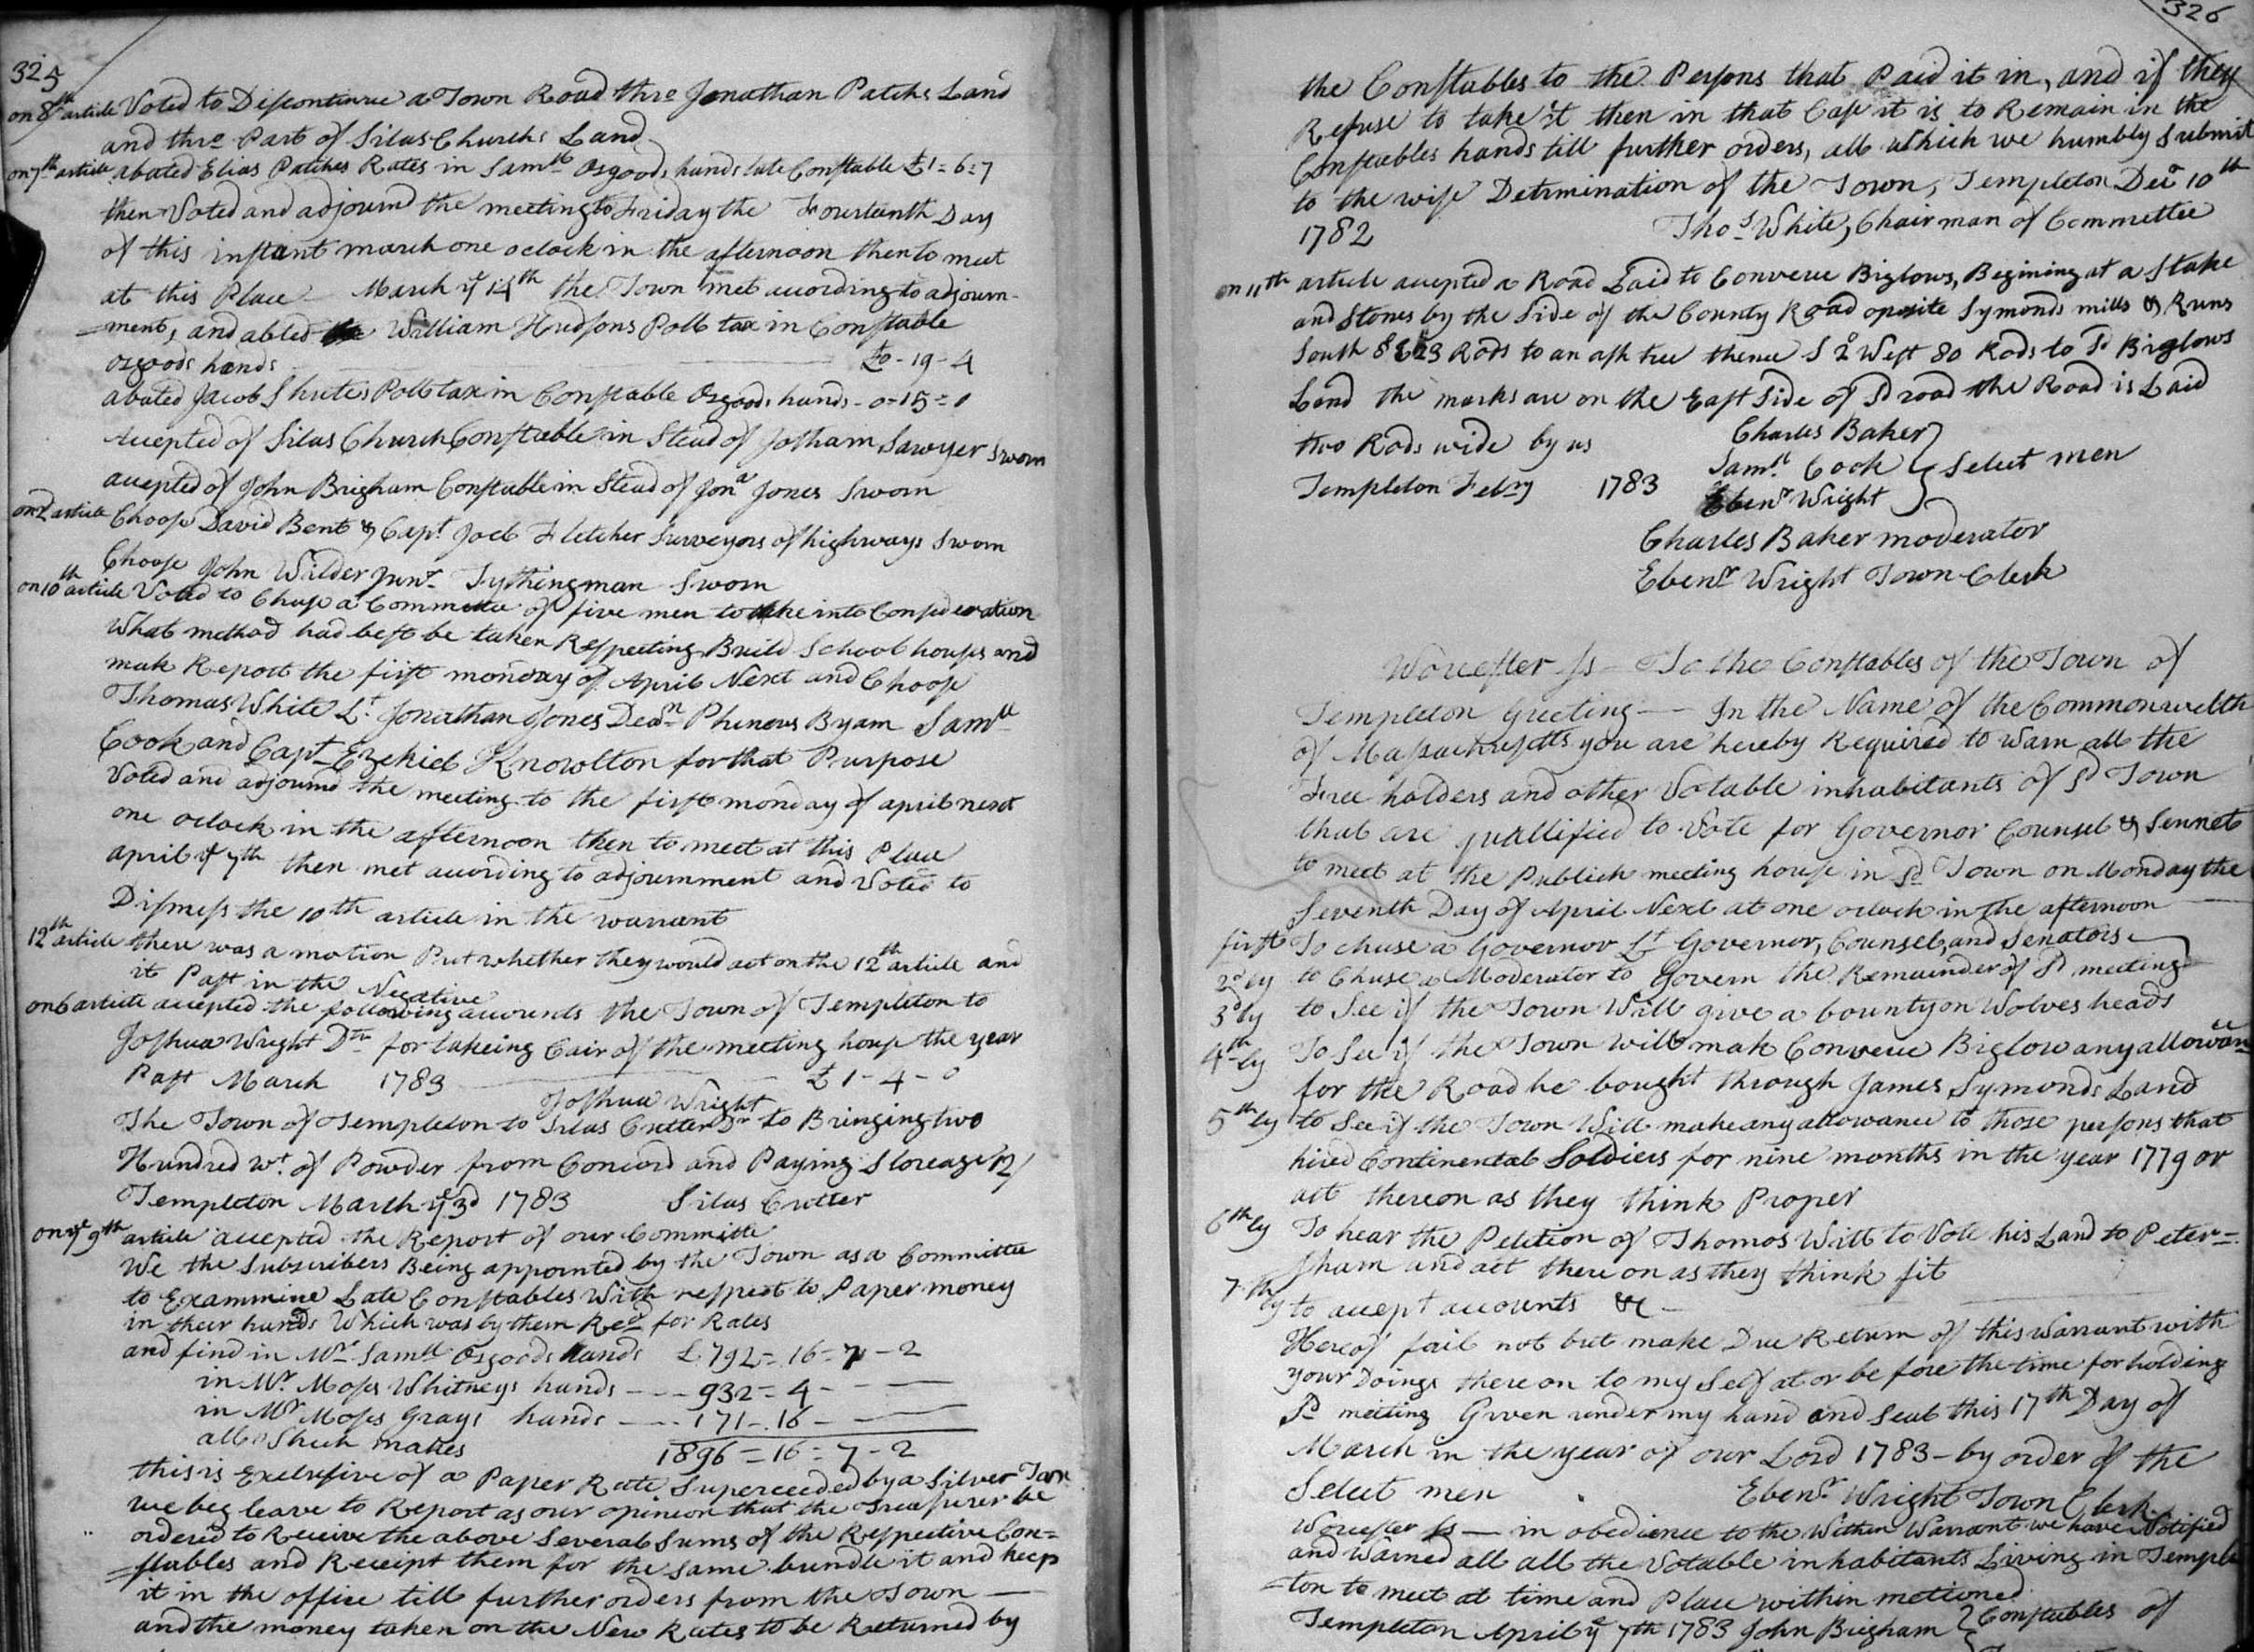 325
on 8th article Voted to Discontinue a Town Road thro Jonathan Patchs Land
and thro Part of Silas Churchs Land
on 7th article abated Elias Patches Rates in Samll Osgoods hands late Constable £1=6=7
then Voted and adjournd the meeting to Friday the Fourteenth Day
of this instant march one oclock in the afternoon then to meet
at this Place — March ye 14th the Town met according to adjourn-
=ment, and abted William Hudsons Poll tax in Constable
Osgoods hands £0-19-4
abated Jacob Shutes Poll tax in Constable Osgoods hands - 0=15=0
Accepted of Silas Church Constable in Stead of Jotham Sawyer Sworn
accepted of John Brigham Constable in Stead of Jona Jones Sworn
on 2 article Choose David Bent & Capt Joel Fletcher Surveyors of highways Sworn
Choose John Wilder Junr Tythingman Sworn
on 10th article Voted to Chuse a Committee of five men to take into Consideration
What method had best be taken Respecting Build School houses and
mak Report the first monday of April Next and Choose
Thomas White Lt Jonathan Jones Deacn Phinehas Byam Samll
Cook and Capt Ezekiel Knowlton for that Purpose
Voted and adjournd the meeting to the first monday of april next
one oclock in the afternoon then to meet at this Place
april ye 7th then met according to adjournment and Voted to
Dismiss the 10th article in the warrant
12th article there was a motion Put whether they would act on the 12th article and
it Past in the Negative
on 6 article accepted the following accounts the Town of Templeton to
Joshua Wright Dtr for takeing Cair of the meeting house the year
Past March 1783 £1-4-0
Joshua Wright
The Town of Templeton to Silas Cutter Dr to Bringing two
Hundred wt of Powder from Concord and Paying Storeage 12/
Templeton March ye 3d 1783 Silas Cutter
on ye 9th article accepted the Report of our Committe
We the Subscribers Being appointed by the Town as a Committee
to Exammine Late Constables With respect to Paper money
in their hands Which was by them Recd for Rates
and find in Mr Samll Osgoods hands £792=16=7-2
in Mr Moses Whitneys hands --- 932=4- — —
in Mr Moses Grays hands --- 171-16- — —
all Which makes 1896=16=7-2
this is Exclusive of a Paper Rate Superceeded by a Silver Tax
we beg leave to Report as our opinion that the Treasurer be
ordered to Receive the above Several Sums of the Respective Con=
=stables and Receipt them for the same bundle it and keep
it in the office till further orders from the Town —
and the money taken on the New Rates to be Returned by
326
the Constables to the Persons that Paid it in, and if they
Refuse to take it then in that Case it is to Remain in the
Constables hands till further orders, all which we humbly Submit
to the wise Detrmination of the Town, Templeton Decr 10th
1782 Thos White, Chairman of Committee
on 11th article accepted a Road Laid to Converce Biglows, Begining at a Stake
and Stones by the Side of the County Road oposite Symonds mills & Runs
South 8 E 23 Rods to an ash tree thence S 2 West 80 Rods to Sd Biglows
Land the marks are on the East Side of Sd road the Road is Laid
two Rods wide by us
Charles Baker
Samll Cook } Select men
Templeton Febry 1783 Ebenr Wright
Charles Baker moderator
Ebenr Wright Town Clerk
Worcester Ss — To the Constables of the Town of
Templeton Greeting — In the Name of the Commonwelth
of Massachusetts you are hereby Required to Warn all the
Free holders and other Votable inhabitants of Sd Town
that are quallified to Vote for Governor Counsel & Sennet
to meet at the Publick meeting house in Sd Town on Monday the
Seventh Day of April Next at one oclock in the afternoon —
first To chuse a Governor Lt Governor, Counsel, and Senators
2dly to Chuse a Moderator to Govern the Remainder of Sd meeting
3dly to See if the Town Will give a bounty on Wolves heads
4thly To See if the Town will mak Converce Biglow any allowance
for the Road he bought through James Symonds Land
5thly to See if the Town Will make any allowance to those persons that
hired Continental Soldiers for nine months in the year 1779 or
act thereon as they think Proper
6thly To hear the Petition of Thomos Witt to Vote his Land to Peter=
sham and act there on as they think fit
7thly to accept accounts &c —
Hereof fail not but make Due Return of this Warrant with
your Doings there on to my Self at or before the time for holding
Sd meeting Given under my hand and Seal this 17th Day of
March in the year of our Lord 1783 - by order of the
Select men Ebenr Wright Town Clerk
Worcester Ss — in obedience to the Within Warrant we have Notified
and Warned all all the Votable inhabitants Living in Temple
=ton to meet at time and Place within metioned
Templeton April ye 7th 1783 John Brigham } Constables of